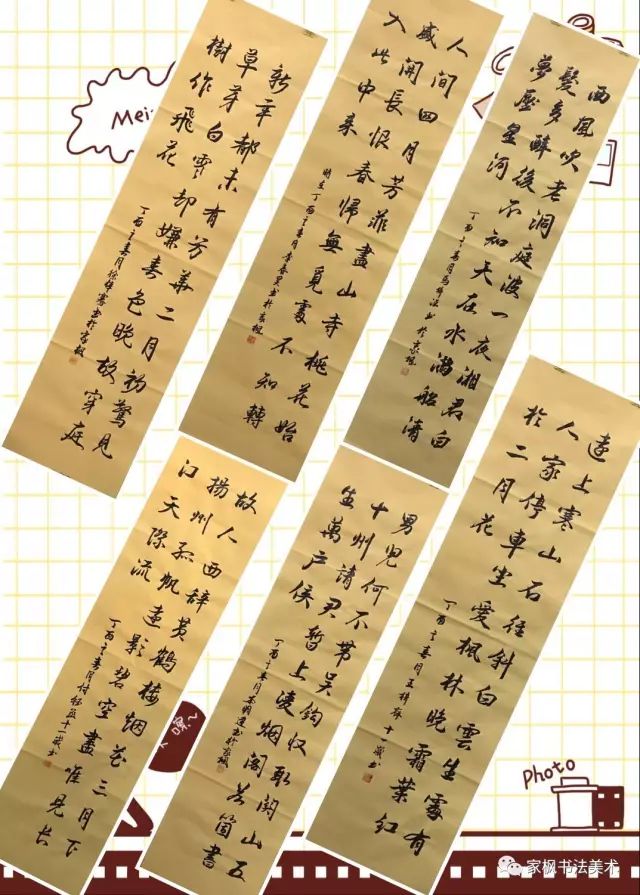 Mei
新年都未有芳華二月初驚見
草芽白雪却嫌春色晚故穿庭
樹作飛花
丁酉之春月書於家楓
人間四月芳菲盡山寺桃花始
盛開長恨春歸無覓處不知轉
入此中來
時在丁酉之春月李春書於家楓
西風吹老洞庭波一夜湘君白
髮多醉後不知天在水滿船清
夢壓星河
丁酉之春月馬書於家楓
故人西辭黃鶴樓烟花三月下
揚州孤帆遠影碧空盡唯見長
江天際流
丁酉之春月付十一歲書
男兒何不帶吳鉤收取關山五
十州請君暫上凌烟閣若箇書
生萬戶侯
丁酉之春月書於家楓
遠上寒山石徑斜白雲生處有
人家停車坐愛楓林晚霜葉紅
於二月花
丁酉之春月王梓存十歲書
Photo
家枫书法美术